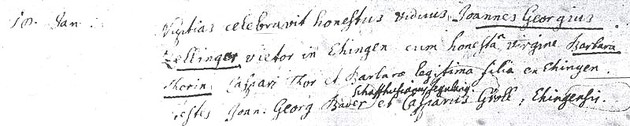 18. Jan: Nuptias celebravit honestus viduus Joannes Georgius
Zellinger vietor in Ehingen cum honestâ virgine Barbara
Thorin, Caspari Thor et Barbarae legitima filia en Ehingen.
testes Joann. Georg Bader et Casparus Groll, Ehingensis.